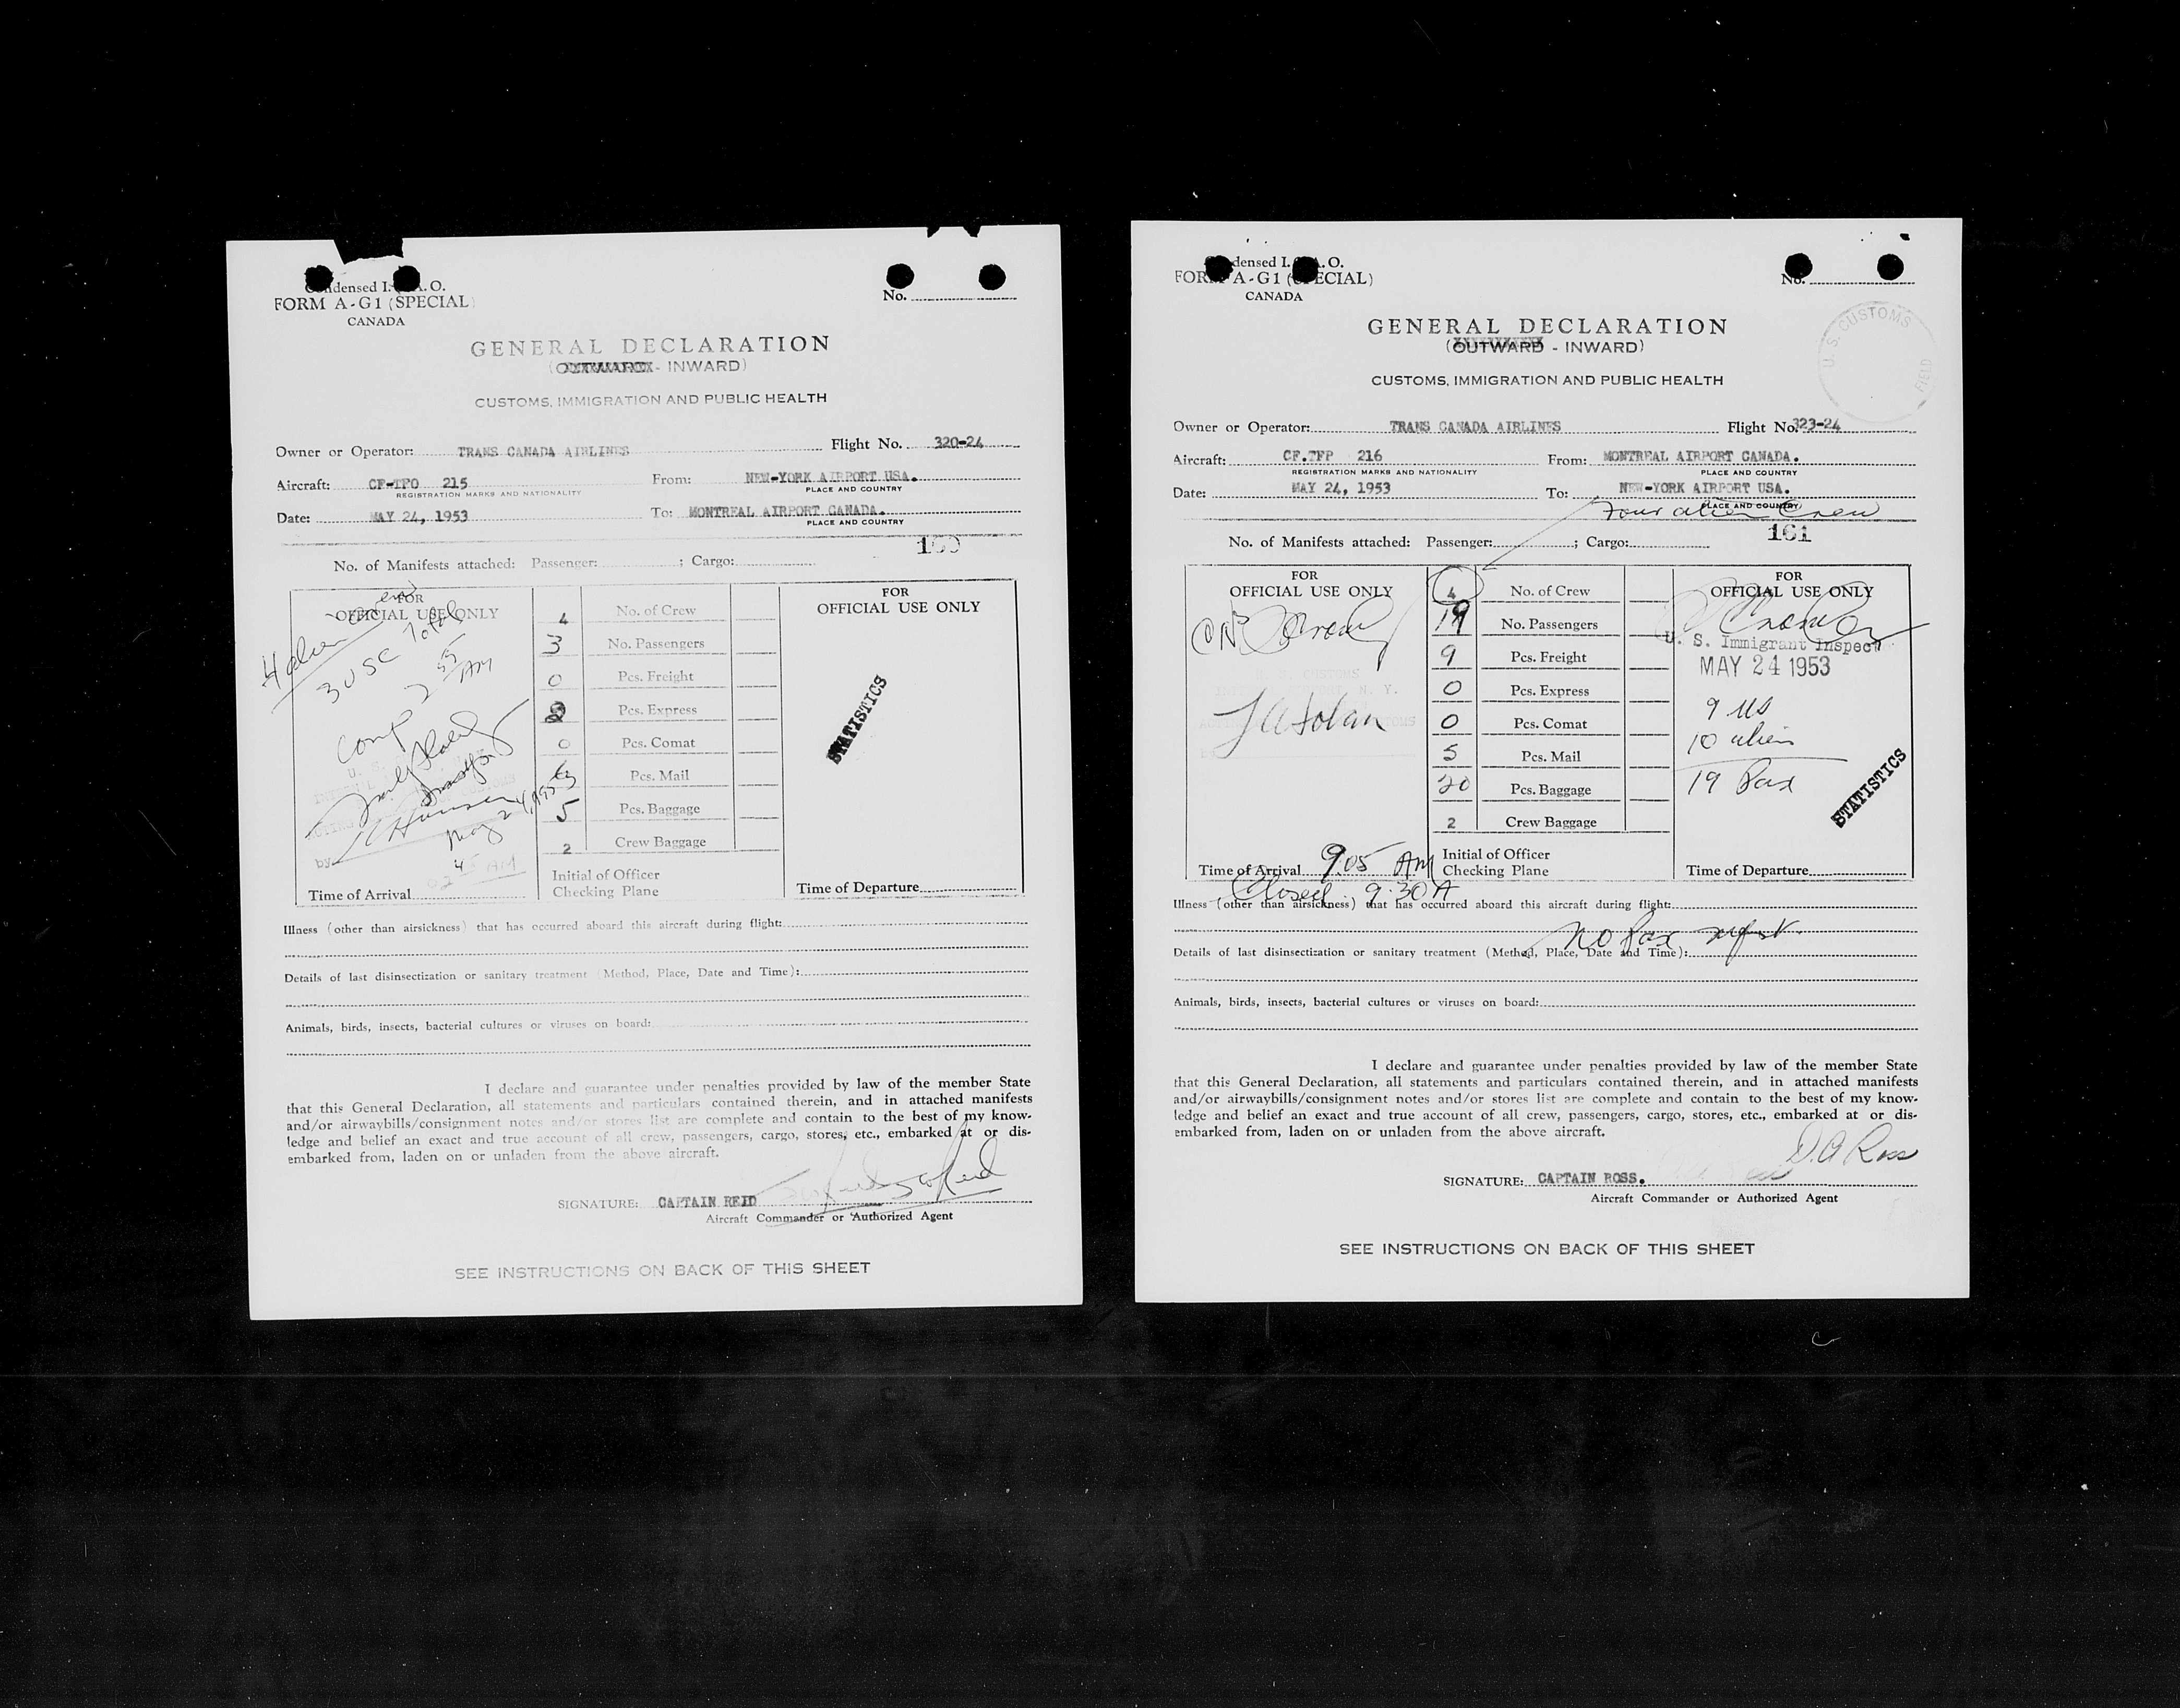 Condensed I.C.A.O.
FORM A-G1 (SPECIAL)
CANADA
No.
GENERAL DECLARATION
(OUTWARD - INWARD)
CUSTOMS, IMMIGRATION AND PUBLIC HEALTH
Owner or Operator: TRANS CANADA AIRLINES Flight No. 320-24
Aircraft: CF-TFO 215 From: NEW-YORK AIRPORT USA.
REGISTRATION MARKS AND NATIONALITY PLACE AND COUNTRY
Date: MAY 24, 1953 To: MONTREAL AIRPORT CANADA.
PLACE AND COUNTRY
No. of Manifests attached: Passenger: ; Cargo:
FOR
OFFICIAL USE ONLY
4 alien crew
3 USC Total
Comp 2 55 AM
May 24, 1953
by
Time of Arrival
4 No. of Crew
3 No. Passengers
0 Pcs. Freight
Pcs. Express
0 Pcs. Comat
Pcs. Mail
5 Pcs. Baggage
2 Crew Baggage
Initial of Officer
Checking Plane
FOR
OFFICIAL USE ONLY
STATISTICS
Time of Departure
Illness (other than airsickness) that has occurred aboard this aircraft during flight:
Details of last disinsectization or sanitary treatment (Method, Place, Date and Time):
Animals, birds, insects, bacterial cultures or viruses on board:
I declare and guarantee under penalties provided by law of the member State
that this General Declaration, all statements and particulars contained therein, and in attached manifests
and/or airwaybills/consignment notes and/or stores list are complete and contain to the best of my know-
ledge and belief an exact and true account of all crew, passengers, cargo, stores, etc., embarked at or dis-
embarked from, laden on or unladen from the above aircraft.
SIGNATURE: CAPTAIN REID
Aircraft Commander or Authorized Agent
SEE INSTRUCTIONS ON BACK OF THIS SHEET
Condensed I.C.A.O.
FORM A-G1 (SPECIAL)
CANADA
No.
U. S. CUSTOMS
FIELD
GENERAL DECLARATION
(OUTWARD - INWARD)
CUSTOMS, IMMIGRATION AND PUBLIC HEALTH
Owner or Operator: TRANS CANADA AIRLINES Flight No. 323-24
Aircraft: CF.TFP 216 From: MONTREAL AIRPORT CANADA.
REGISTRATION MARKS AND NATIONALITY PLACE AND COUNTRY
Date: MAY 24, 1953 To: NEW-YORK AIRPORT USA.
PLACE AND COUNTRY
Four alien Crew
161
No. of Manifests attached: Passenger: ; Cargo:
FOR
OFFICIAL USE ONLY
Time of Arrival 9.05 AM
Closed 9.30 A
4 No. of Crew
19 No. Passengers
9 Pcs. Freight
0 Pcs. Express
0 Pcs. Comat
5 Pcs. Mail
20 Pcs. Baggage
2 Crew Baggage
Initial of Officer
Checking Plane
FOR
OFFICIAL USE ONLY
U. S. Immigrant Inspect
MAY 24 1953
9 US
10 alien
19 Pax
STATISTICS
Time of Departure
Illness (other than airsickness) that has occurred aboard this aircraft during flight:
No Pax mfst.
Details of last disinsectization or sanitary treatment (Method, Place, Date and Time):
Animals, birds, insects, bacterial cultures or viruses on board:
I declare and guarantee under penalties provided by law of the member State
that this General Declaration, all statements and particulars contained therein, and in attached manifests
and/or airwaybills/consignment notes and/or stores list are complete and contain to the best of my know-
ledge and belief an exact and true account of all crew, passengers, cargo, stores, etc., embarked at or dis-
embarked from, laden on or unladen from the above aircraft.
D.A Ross
SIGNATURE: CAPTAIN ROSS.
Aircraft Commander or Authorized Agent
SEE INSTRUCTIONS ON BACK OF THIS SHEET